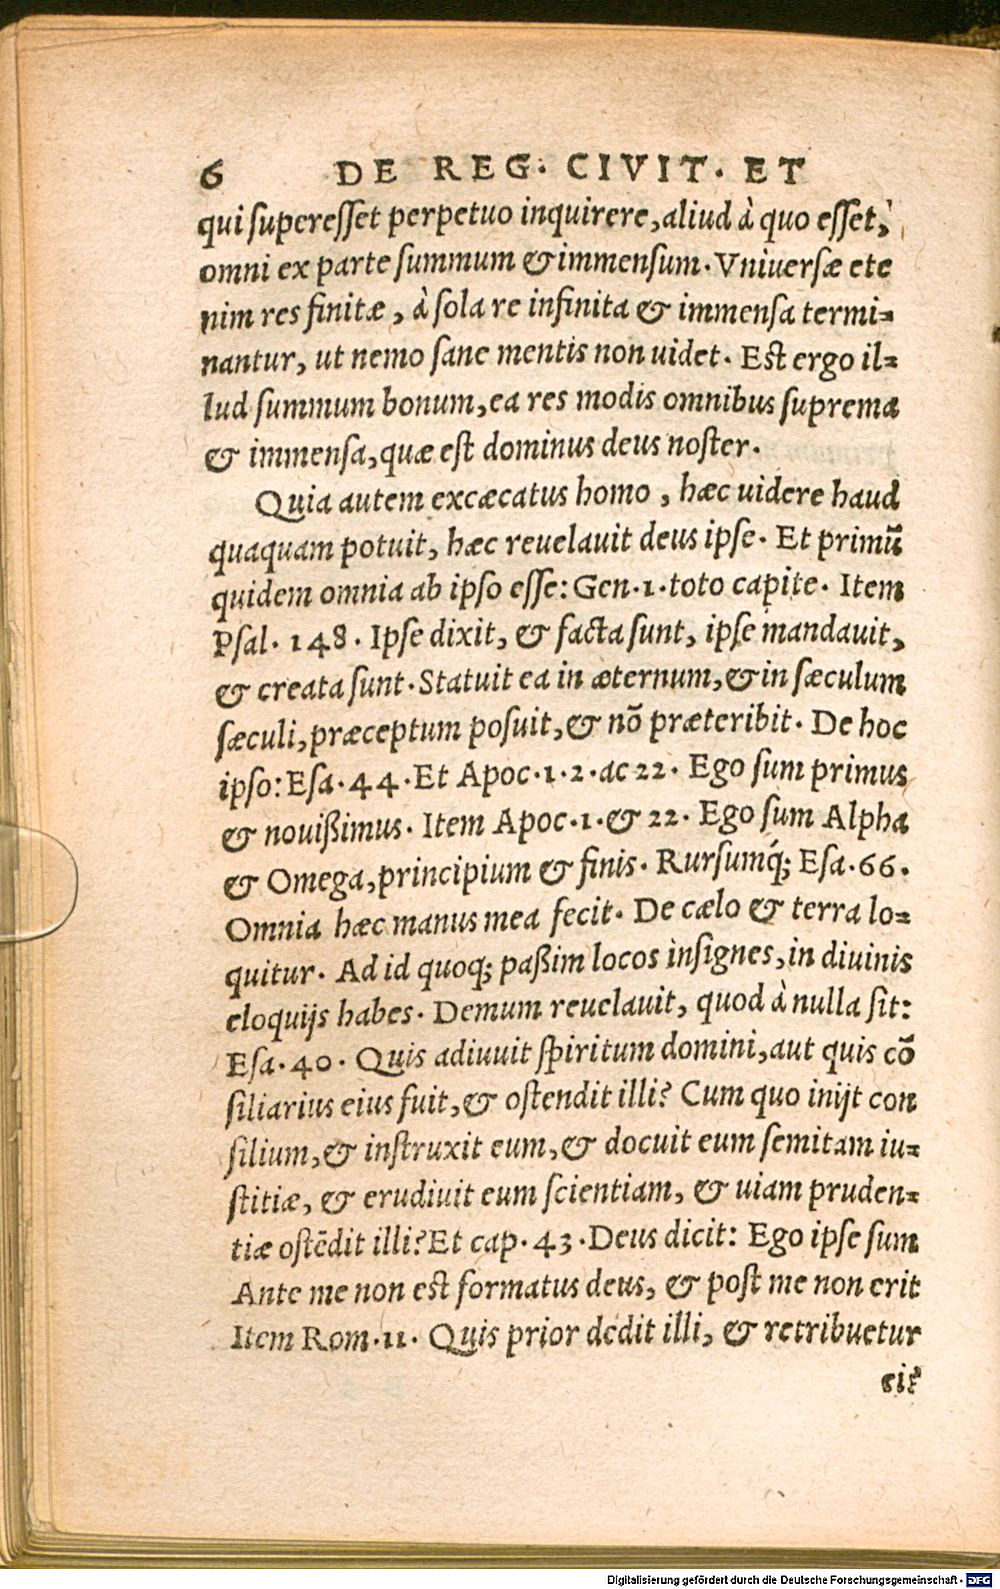 6 DE REG. CIVIT. ET
qui superesset perpetuo inquirere, aliud à quo esset,
omni ex parte summum & immensum. Vniuersæ ete
nim res finitæ, à sola re infinita & immensa termi=
nantur, ut nemo sane mentis non uidet. Est ergo il=
lud summum bonum, ea res modis omnibus suprema
& immensa, quæ est dominus deus noster.
Quia autem excæcatus homo, hæc uidere haud
quaquam potuit, hæc reuelauit deus ipse. Et primū
quidem omnia ab ipso esse: Gen. 1. toto capite. Item
Psal. 148. Ipse dixit, & facta sunt, ipse mandauit,
& creata sunt. Statuit ea in æternum, & in sæculum
sæculi, præceptum posuit, & nō præteribit. De hoc
ipso: Esa. 44. Et Apoc. 1. 2. ac 22. Ego sum primus
& nouißimus. Item Apoc. 1. & 22. Ego sum Alpha
& Omega, principium & finis. Rursumq́; Esa. 66.
Omnia hæc manus mea fecit. De cælo & terra lo=
quitur. Ad id quoq; paßim locos insignes, in diuinis
eloquijs habes. Demum reuelauit, quod à nulla sit:
Esa. 40. Quis adiuuit spiritum domini, aut quis cō
siliarius eius fuit, & ostendit illi? Cum quo inijt con
silium, & instruxit eum, & docuit eum semitam iu=
stitiæ, & erudiuit eum scientiam, & uiam pruden=
tiæ ostēdit illi? Et cap. 43. Deus dicit: Ego ipse sum
Ante me non est formatus deus, & post me non erit
Item Rom. 11. Quis prior dedit illi, & retribuetur
ei?
Digitalisierung gefördert durch die Deutsche Forschungsgemeinschaft - DFG